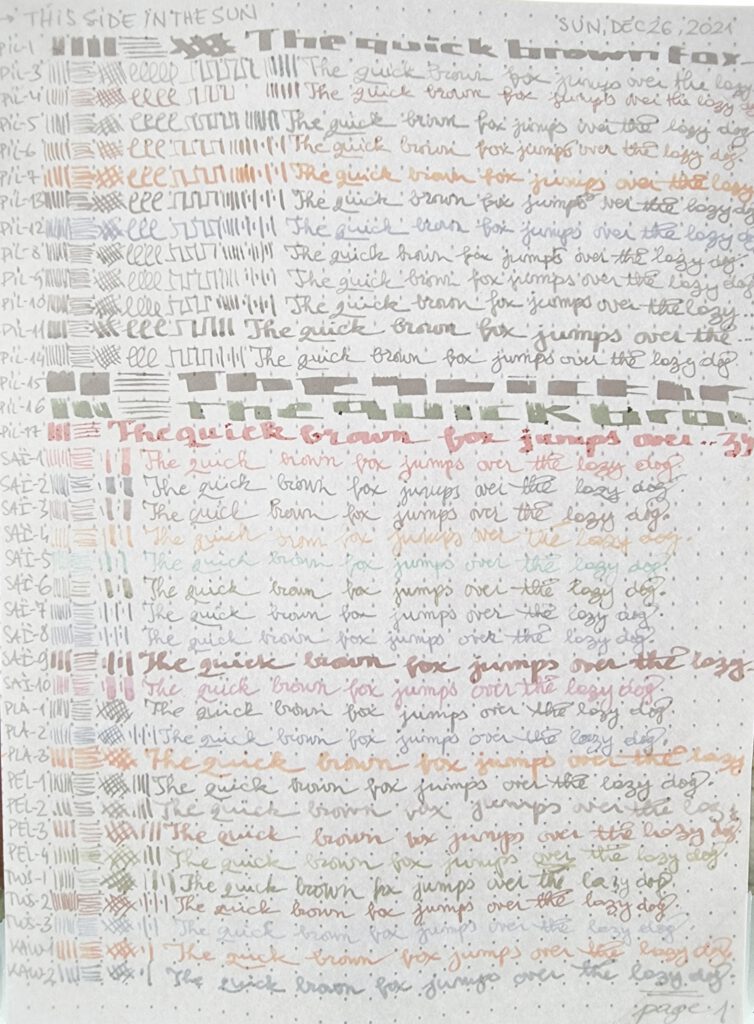 → THIS SIDE IN THE SUN SUN, DEC 26, 2021
PIL-1 The quick brown fox
PIL-3 The quick brown fox jumps over the lazy
PIL-4 The quick brown fox jumps over the lazy
PIL-5 The quick brown fox jumps over the lazy dog.
PIL-6 The quick brown fox jumps over the lazy dog.
PIL-7 The quick brown fox jumps over the lazy
PIL-13 The quick brown fox jumps over the lazy dog
PIL-12 The quick brown fox jumps over the lazy d
PIL-8 The quick brown fox jumps over the lazy dog.
PIL-9 The quick brown fox jumps over the lazy dog
PIL-10 The quick brown fox jumps over the lazy.
PIL-11 The quick brown fox jumps over the...
PIL-14 The quick brown fox jumps over the lazy dog
PIL-15 The quick br
PIL-16 THE QUICK bro
PIL-17 The quick brown fox jumps over..
SAI-1 The quick brown fox jumps over the lazy dog.
SAI-2 The quick brown fox jumps over the lazy dog.
SAI-3 The quick brown fox jumps over the lazy dog.
SAI-4 The quick brown fox jumps over the lazy dog.
SAI-5 The quick brown fox jumps over the lazy dog.
SAI-6 The quick brown fox jumps over the lazy dog.
SAI-7 The quick brown fox jumps over the lazy dog.
SAI-8 The quick brown fox jumps over the lazy dog.
SAI-9 The quick brown fox jumps over the lazy.
SAI-10 The quick brown fox jumps over the lazy dog.
PLA-1 The quick brown fox jumps over the lazy dog.
PLA-2 The quick brown fox jumps over the lazy dog.
PLA-3 The quick brown fox jumps over the lazy
PEL-1 The quick brown fox jumps over the lazy dog.
PEL-2 The quick brown fox jumps over the lazy
PEL-3 The quick brown fox jumps over the lazy dog.
PEL-4 The quick brown fox jumps over the lazy dog.
TWS-1 The quick brown fox jumps over the lazy dog.
TWS-2 The quick brown fox jumps over the lazy dog.
TWS-3 The quick brown fox jumps over the lazy dog.
KAW-1 The quick brown fox jumps over the lazy dog.
KAW-2 The quick brown fox jumps over the lazy dog.
page 1